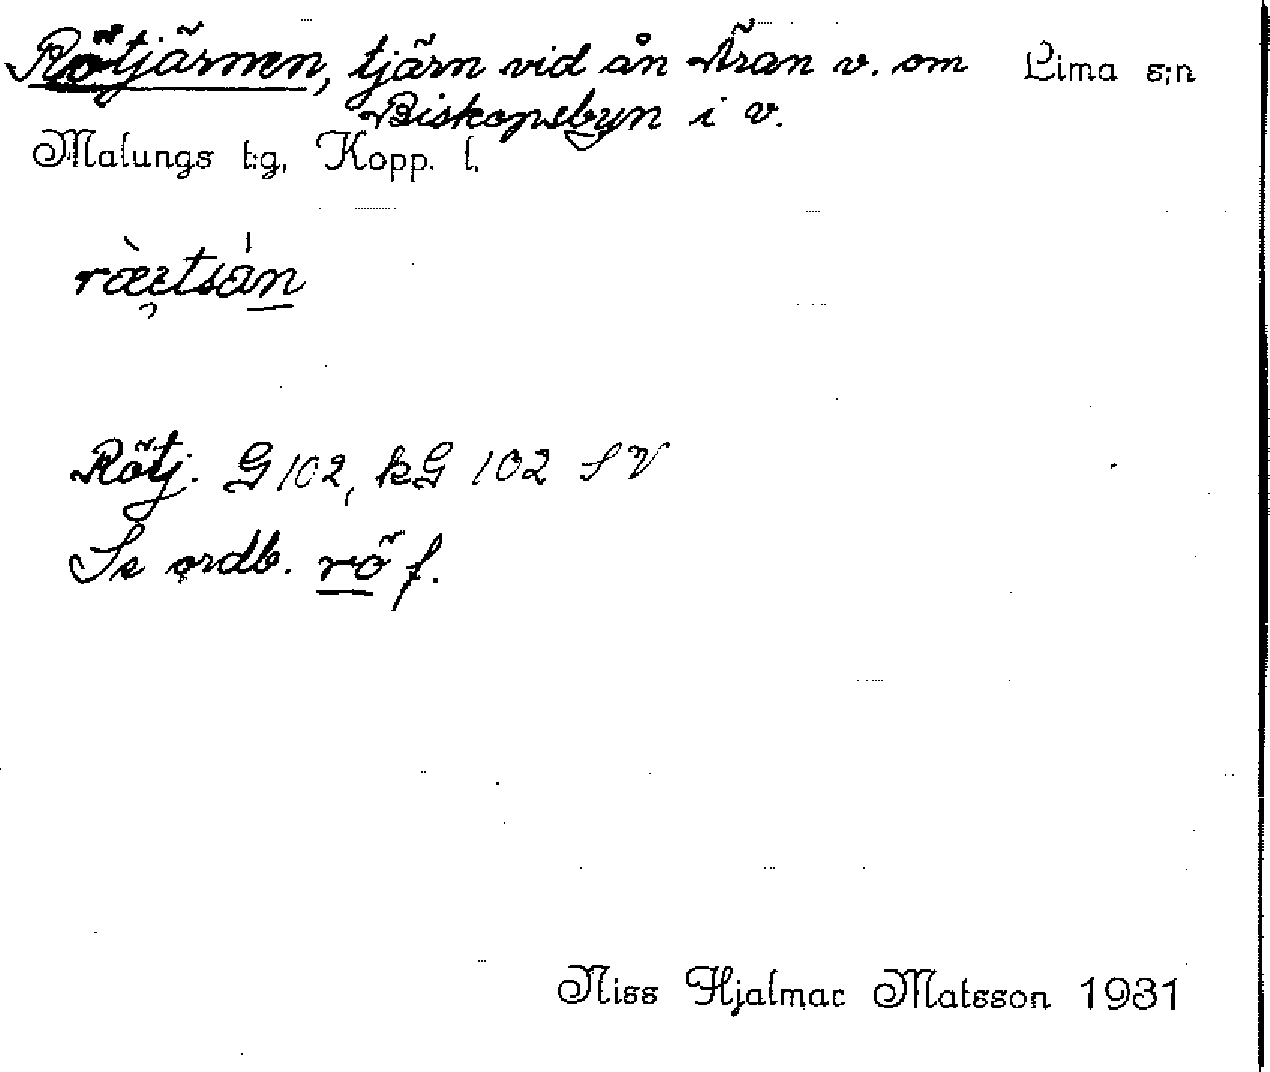 Rötjärnen, tjärn vid ån Äran v. om Lima s:n
Biskopsbyn i v.
Malungs t:g, Kopp. l.
Rötj. G 102, kG 102 SV
Se ordb. rö f.
Niss Hjalmar Matsson 1931